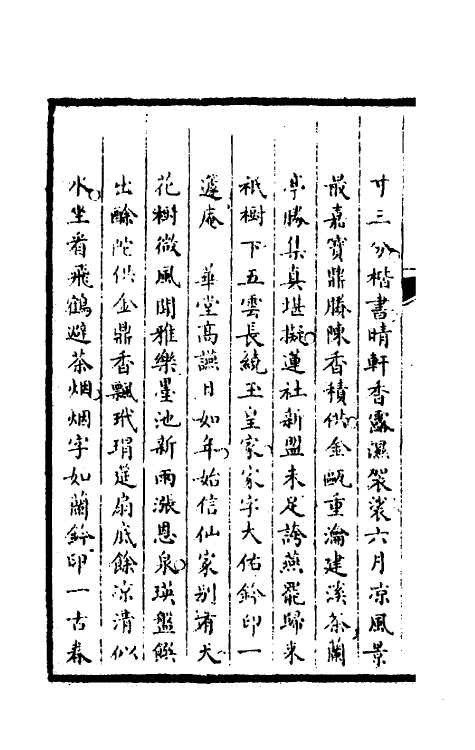 寸三分楷書晴軒香靄濕袈裟六月凉風景
最嘉寳鼎騰陳香積供金甌重瀹建溪茶蘭
亭勝集真堪擬蓮社新盟未足誇燕罷歸来
祇樹下五雲長繞玉皇家家字大佑鈐印一
蘧庵　華堂髙讌日如年始信仙家别有天
花樹微風聞雅樂墨池新雨漲恩泉瑛盤饌
出酴陀供金鼎香飄玳瑁筵扇底餘凉清似
水坐看飛鶴避茶烟烟字如蘭鈐印一古春